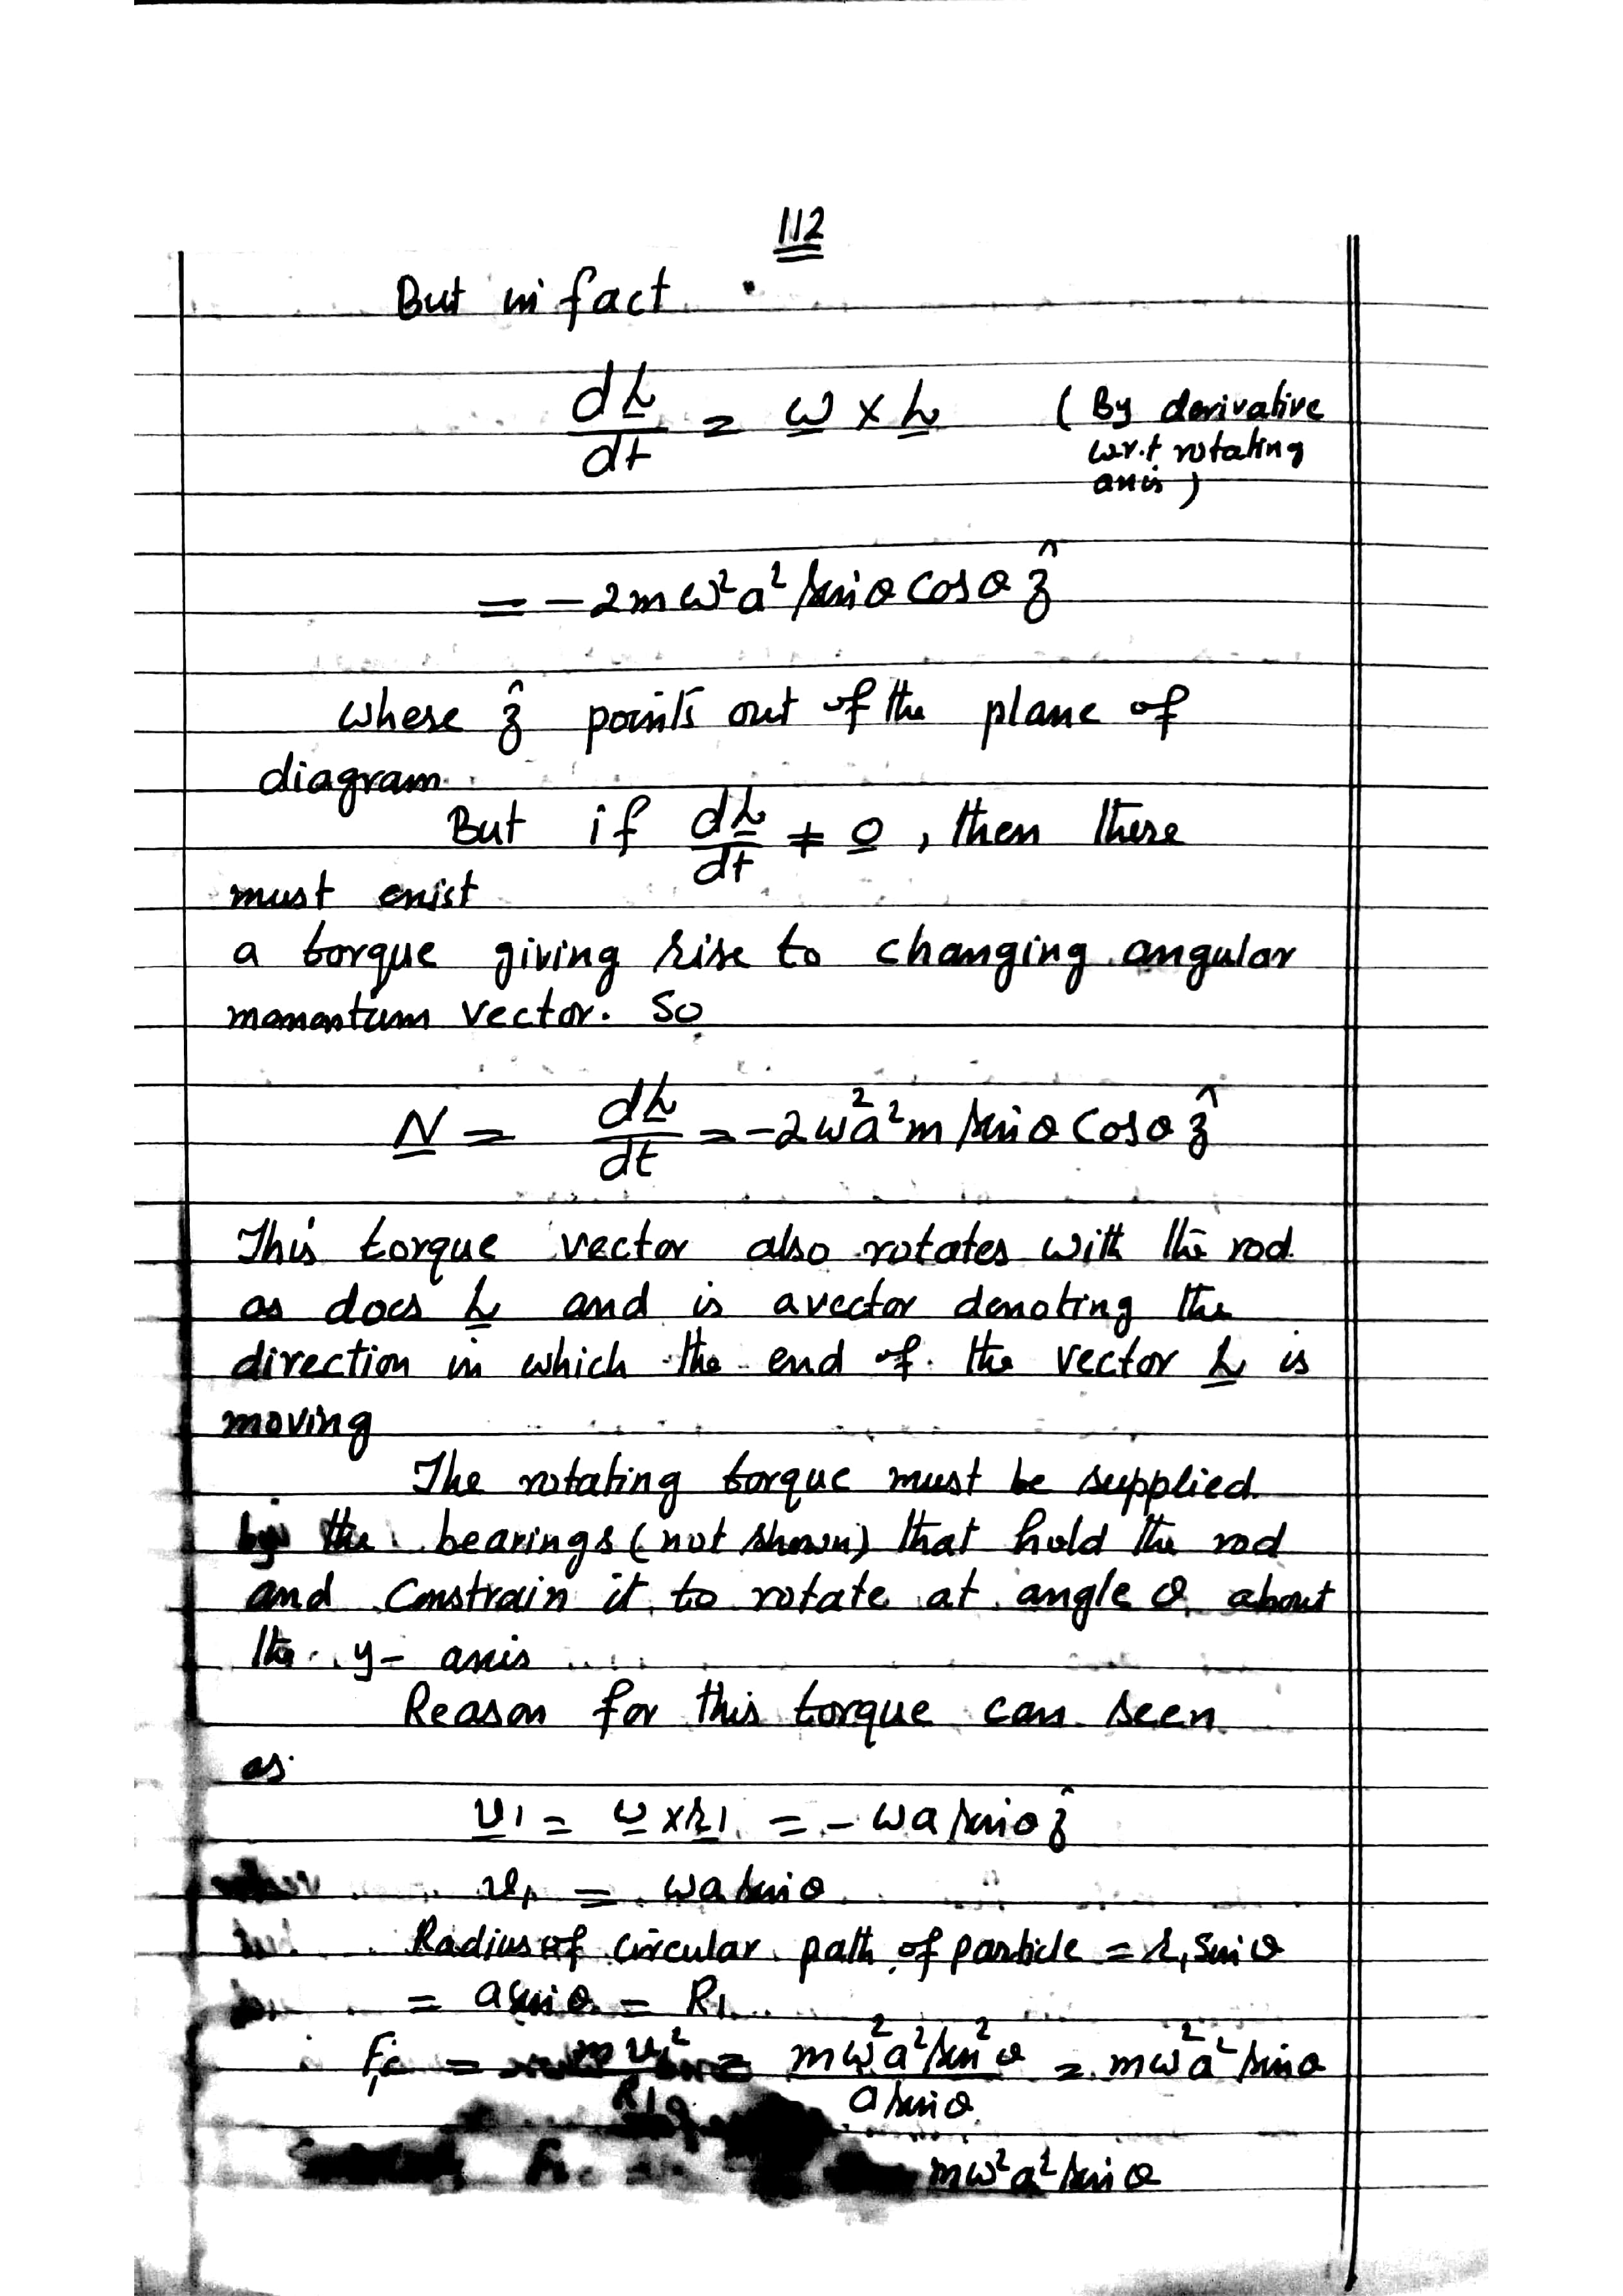 112
But in fact
dL/dt = ω × L (By derivative
w.r.t rotating
axis)
= -2mω²a² sinθ cosθ ẑ
where ẑ points out of the plane of
diagram
But if dL/dt ≠ 0, then there
must exist
a torque giving rise to changing angular
momentum vector. So
N = dL/dt = -2ω²a²m sinθ cosθ ẑ
This torque vector also rotates with the rod
as does L and is a vector denoting the
direction in which the end of the vector L is
moving
The rotating torque must be supplied
by the bearings (not shown) that hold the rod
and constrain it to rotate at angle θ about
the y- axis
Reason for this torque can seen
as
v1 = ω × r1 = - ωa sinθ ẑ
v1 = ωa sinθ
Radius of circular path of particle = r1 sinθ
= a sinθ = R1
F1c = mv1²/R1 = mω²a² sin²θ / a sinθ = mω²a² sinθ
mω²a² sinθ